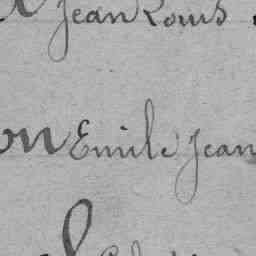 Jean Louis
on Emile Jean